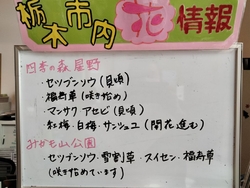 栃木市内花情報
四季の森星野
・セツブンソウ（見頃）
・福寿草（咲き始め）
・マンサク アセビ（見頃）
・紅梅・白梅・サンシュユ（開花進む）
みかも山公園
・セツブンソウ・雪割草・スイセン・福寿草
（咲き始めています）